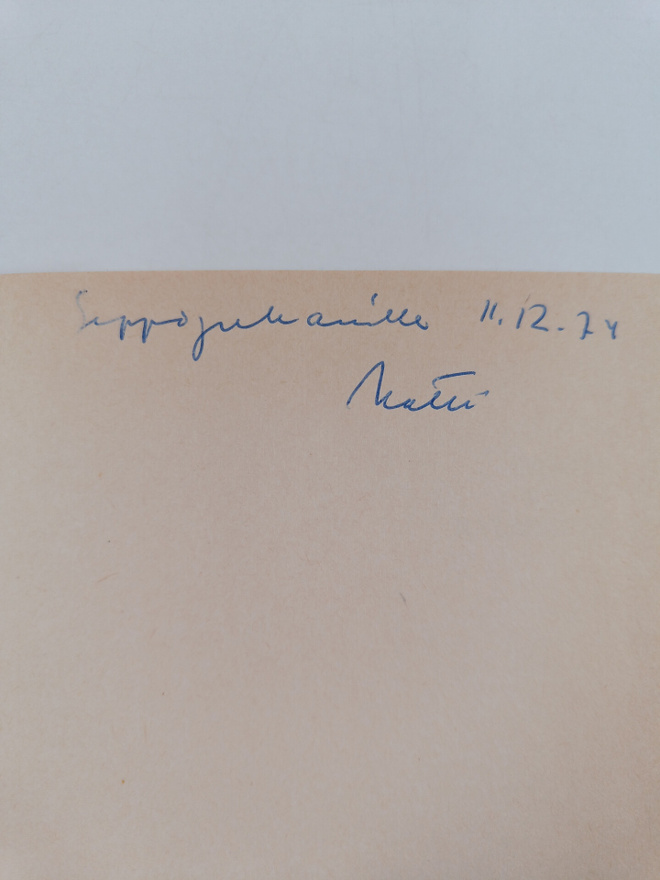 Seppojuhanille 11.12.74
Matti